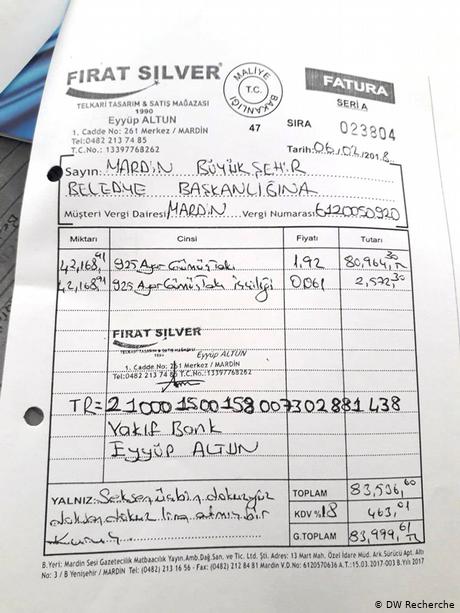 FIRAT SILVER
TELKARİ TASARIM & SATIŞ MAĞAZASI
1990
Eyyüp ALTUN
1. Cadde No: 261 Merkez / MARDİN
Tel:0482 213 74 85
T.C.No.: 13397768262
MALİYE
T.C.
BAKANLIĞI
47
FATURA
SERİ A
SIRA 023804
Tarih: 06/02/2018
Sayın: MARDİN BÜYÜKŞEHİR
BELEDİYE BAŞKANLIĞINA
Müşteri Vergi Dairesi MARDİN Vergi Numarası: 6120050920
Miktarı Cinsi Fiyatı Tutarı
42,168,91 925 Ayar Gümüş Takı 1.92 80,964,30 TL
42,168,91 925 Ayar Gümüş Takı işçiliği 0.061 2,572,30
FIRAT SILVER
TELKARİ TASARIM & SATIŞ MAĞAZASI
1990 Eyyüp ALTUN
1. Cadde No: 261 Merkez / MARDİN
Tel:0482 213 74 85 T.C.No.: 13397768262
TR= 21000 1500158 007302881438
Vakıf Bank
Eyyüp ALTUN
YALNIZ: Seksenüçbin dokuzyüz
doksandokuz lira atmış bir
Kuruş
TOPLAM 83,536,60
KDV %18 463,01
G.TOPLAM 83,999,61 TL
B.Yeri: Mardin Sesi Gazetecilik Matbaacılık Yayın.Amb.Dağ.San. ve Tic. Ltd. Şti. Adres: 13 Mart Mah. Özel İdare Müd. Ark Sürücü Apt. Altı
No: 3 / B Yenişehir / MARDİN Tel: (0482) 213 16 56 - Fax: (0482) 212 84 81 Mardin V.D. No: 6120570636 A.T.:15.03.2017-003 B.Yılı 2017
© DW Recherche